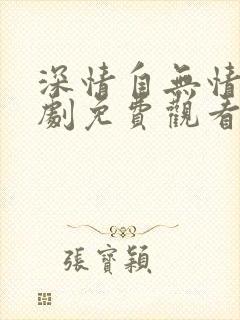 深情自無情
劇免費觀看
張寶穎